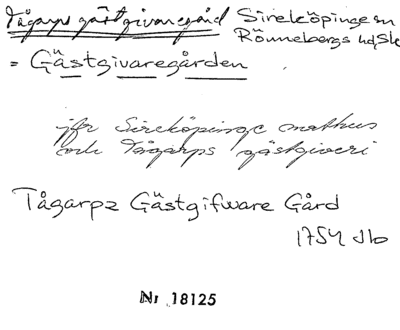 Tågarps gästgivaregård Sireköpinge sn
Rönnebergs hd, Sk
= Gästgivaregården
jfr Sireköpinge mathus
och Tågarps gästgiveri
Tågarpz Gästgifware Gård
1754 Jb
Nr 18125